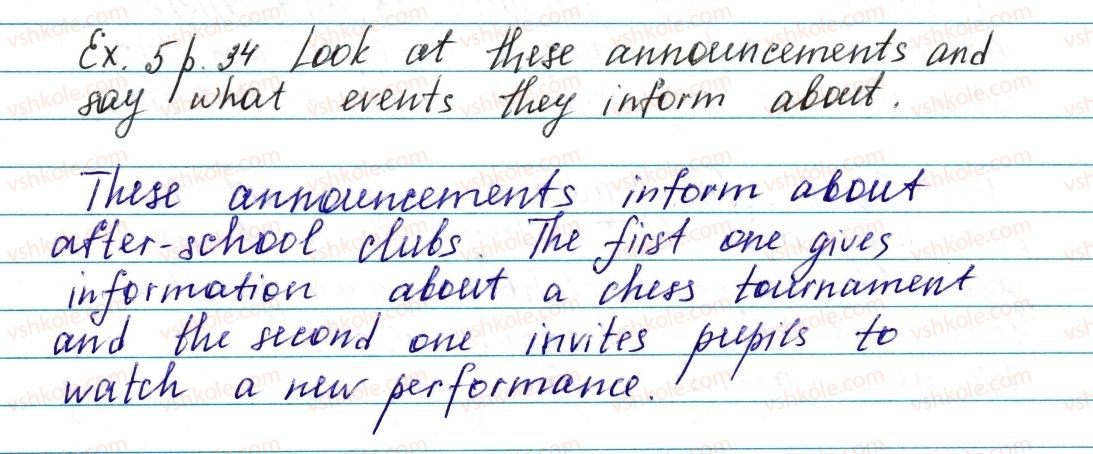 Ex. 5 p. 34 Look at these announcements and
say what events they inform about.
These announcements inform about
after-school clubs. The first one gives
information about a chess tournament
and the second one invites pupils to
watch a new performance.